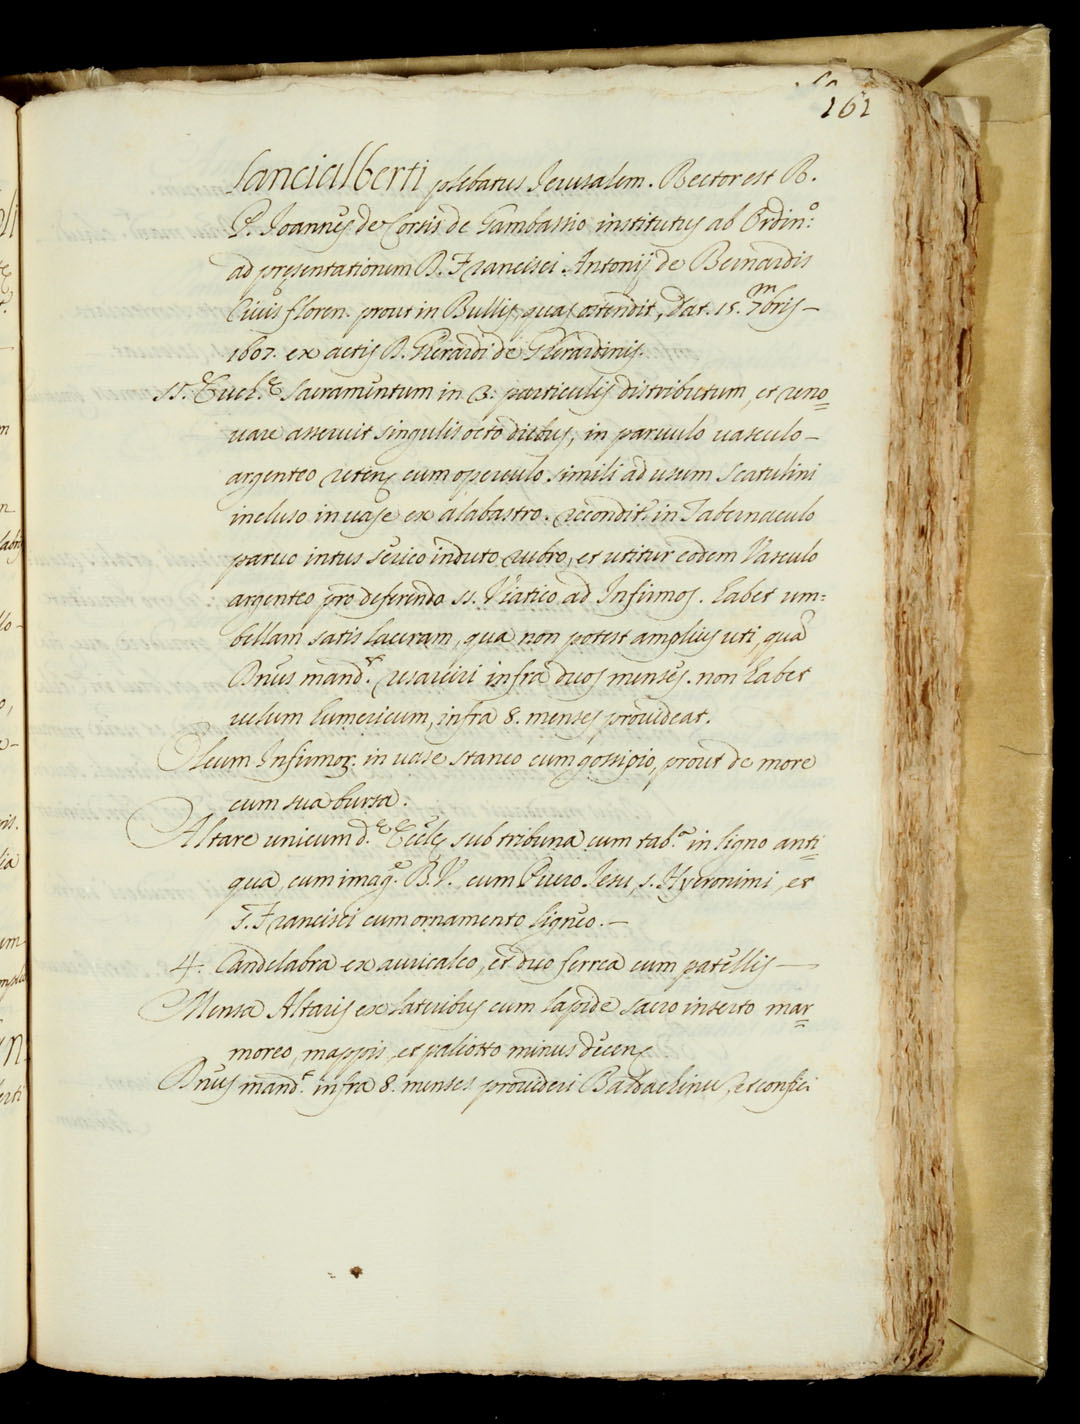 161
Sancialberti plebatus Jerusalem. Rector est R.
P. Joannes de Corsis de Gambassio institutus ab Ordin:o
ad presentationem D. Francisci Antonij de Bernardis
Civis floren. prout in Bullis, quas ostendit, Dat. 15. 7mbris –
1607. ex actis D. Gherardi de Gherardinis.
SS. Euch.e Sacramentum in 3: particulis distributum, et reno=
vare asseruit singulis octo diebus, in parvulo vasculo –
argenteo retens cum operculo simili ad usum Scatulini
incluso in vase ex alabastro. recondit.r in Tabernaculo
parvo intus serico induto rubro, et utitur eodem Vasculo
argenteo pro deferendo SS. Viatico ad Infirmos. habet um=
bellam satis laceram, qua non potest amplius uti, qua
Dnus mand.t resarciri infra duos menses. non habet
velum humericum, infra 8. menses provideat.
Oleum Infirmor. in vase staneo cum gossipio, prout de more
cum sua bursa.
Altare unicum d.e Eccle sub tribuna cum tab.a in ligno anti=
qua, cum imag.e B.V. cum Puero Jesu, S. Hyeronimi, et
S. Francisci cum ornamento ligneo. –
4. Candelabra ex auricalco, et duo ferrea cum patellis –
Mensa Altaris ex lateribus cum lapide sacro inserto mar=
moreo, mappis, et paliotto minus decens
Dnus mand.t infra 8. menses provideri Baldachinu, et confici